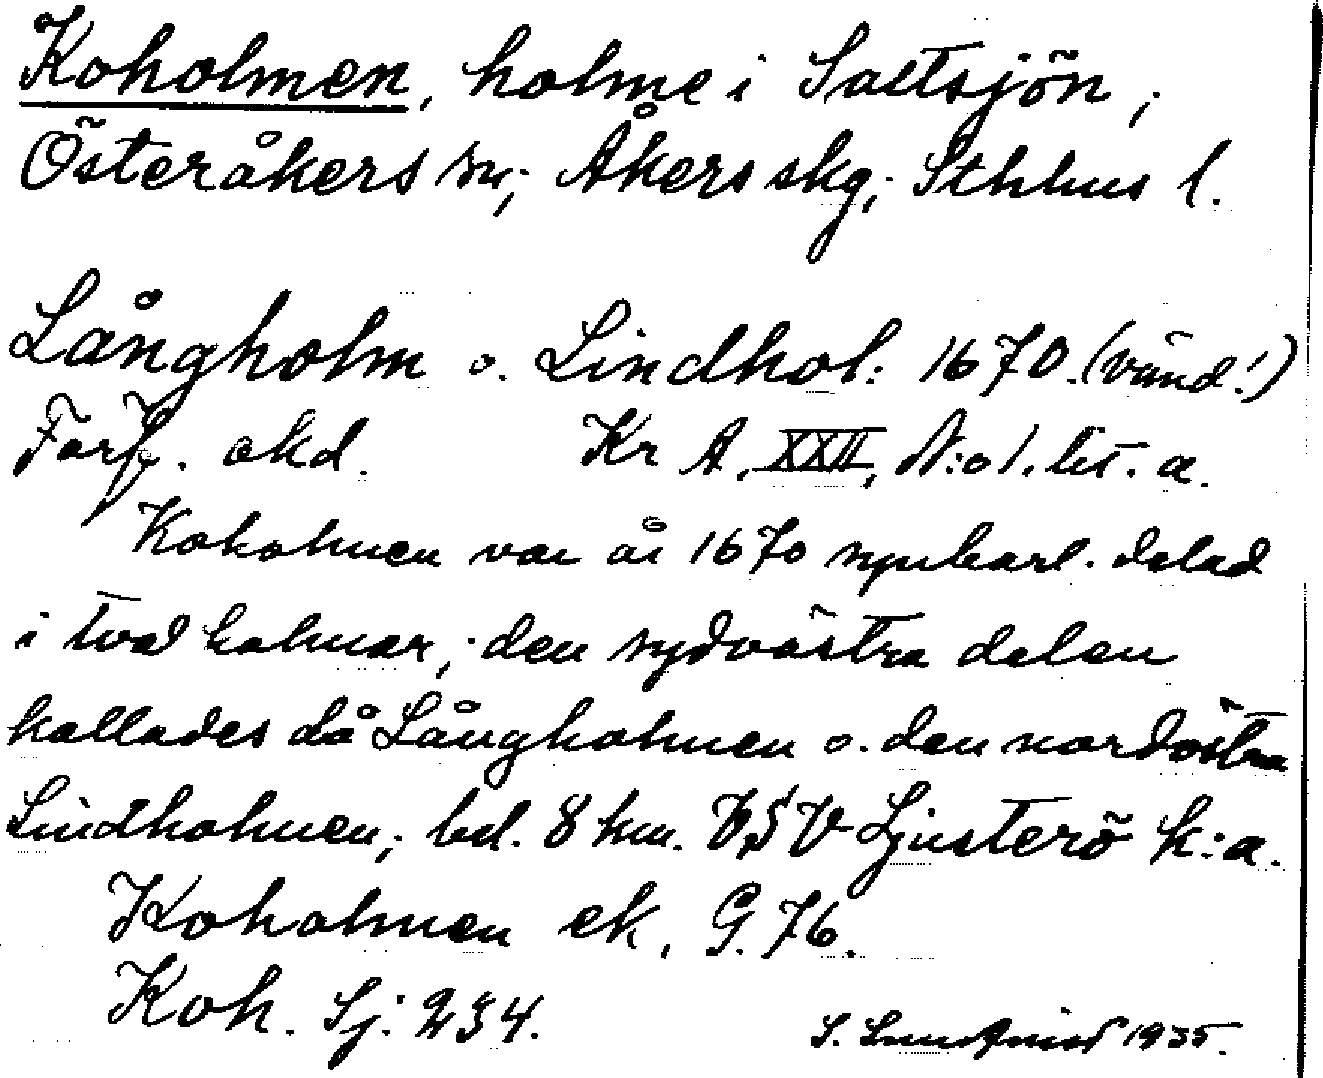 Koholmen, holme i Saltsjön,
Österåkers sn; Åkers skg; Sthlms l.
Långholm o. Lindhol: 1670. (vänd!)
Förf. okd. Kr A, XXII, N:o 1. lit. a.
Koholmen var år 1670 synbarl. delad
i två holmar; den sydvästra delen
kallades då Långholmen o. den nordöstra
Lindholmen; bel. 8 km. VSV Ljusterö k:a.
Koholmen ek, G. 76.
Koh. Sj: 234.
S. 1935.